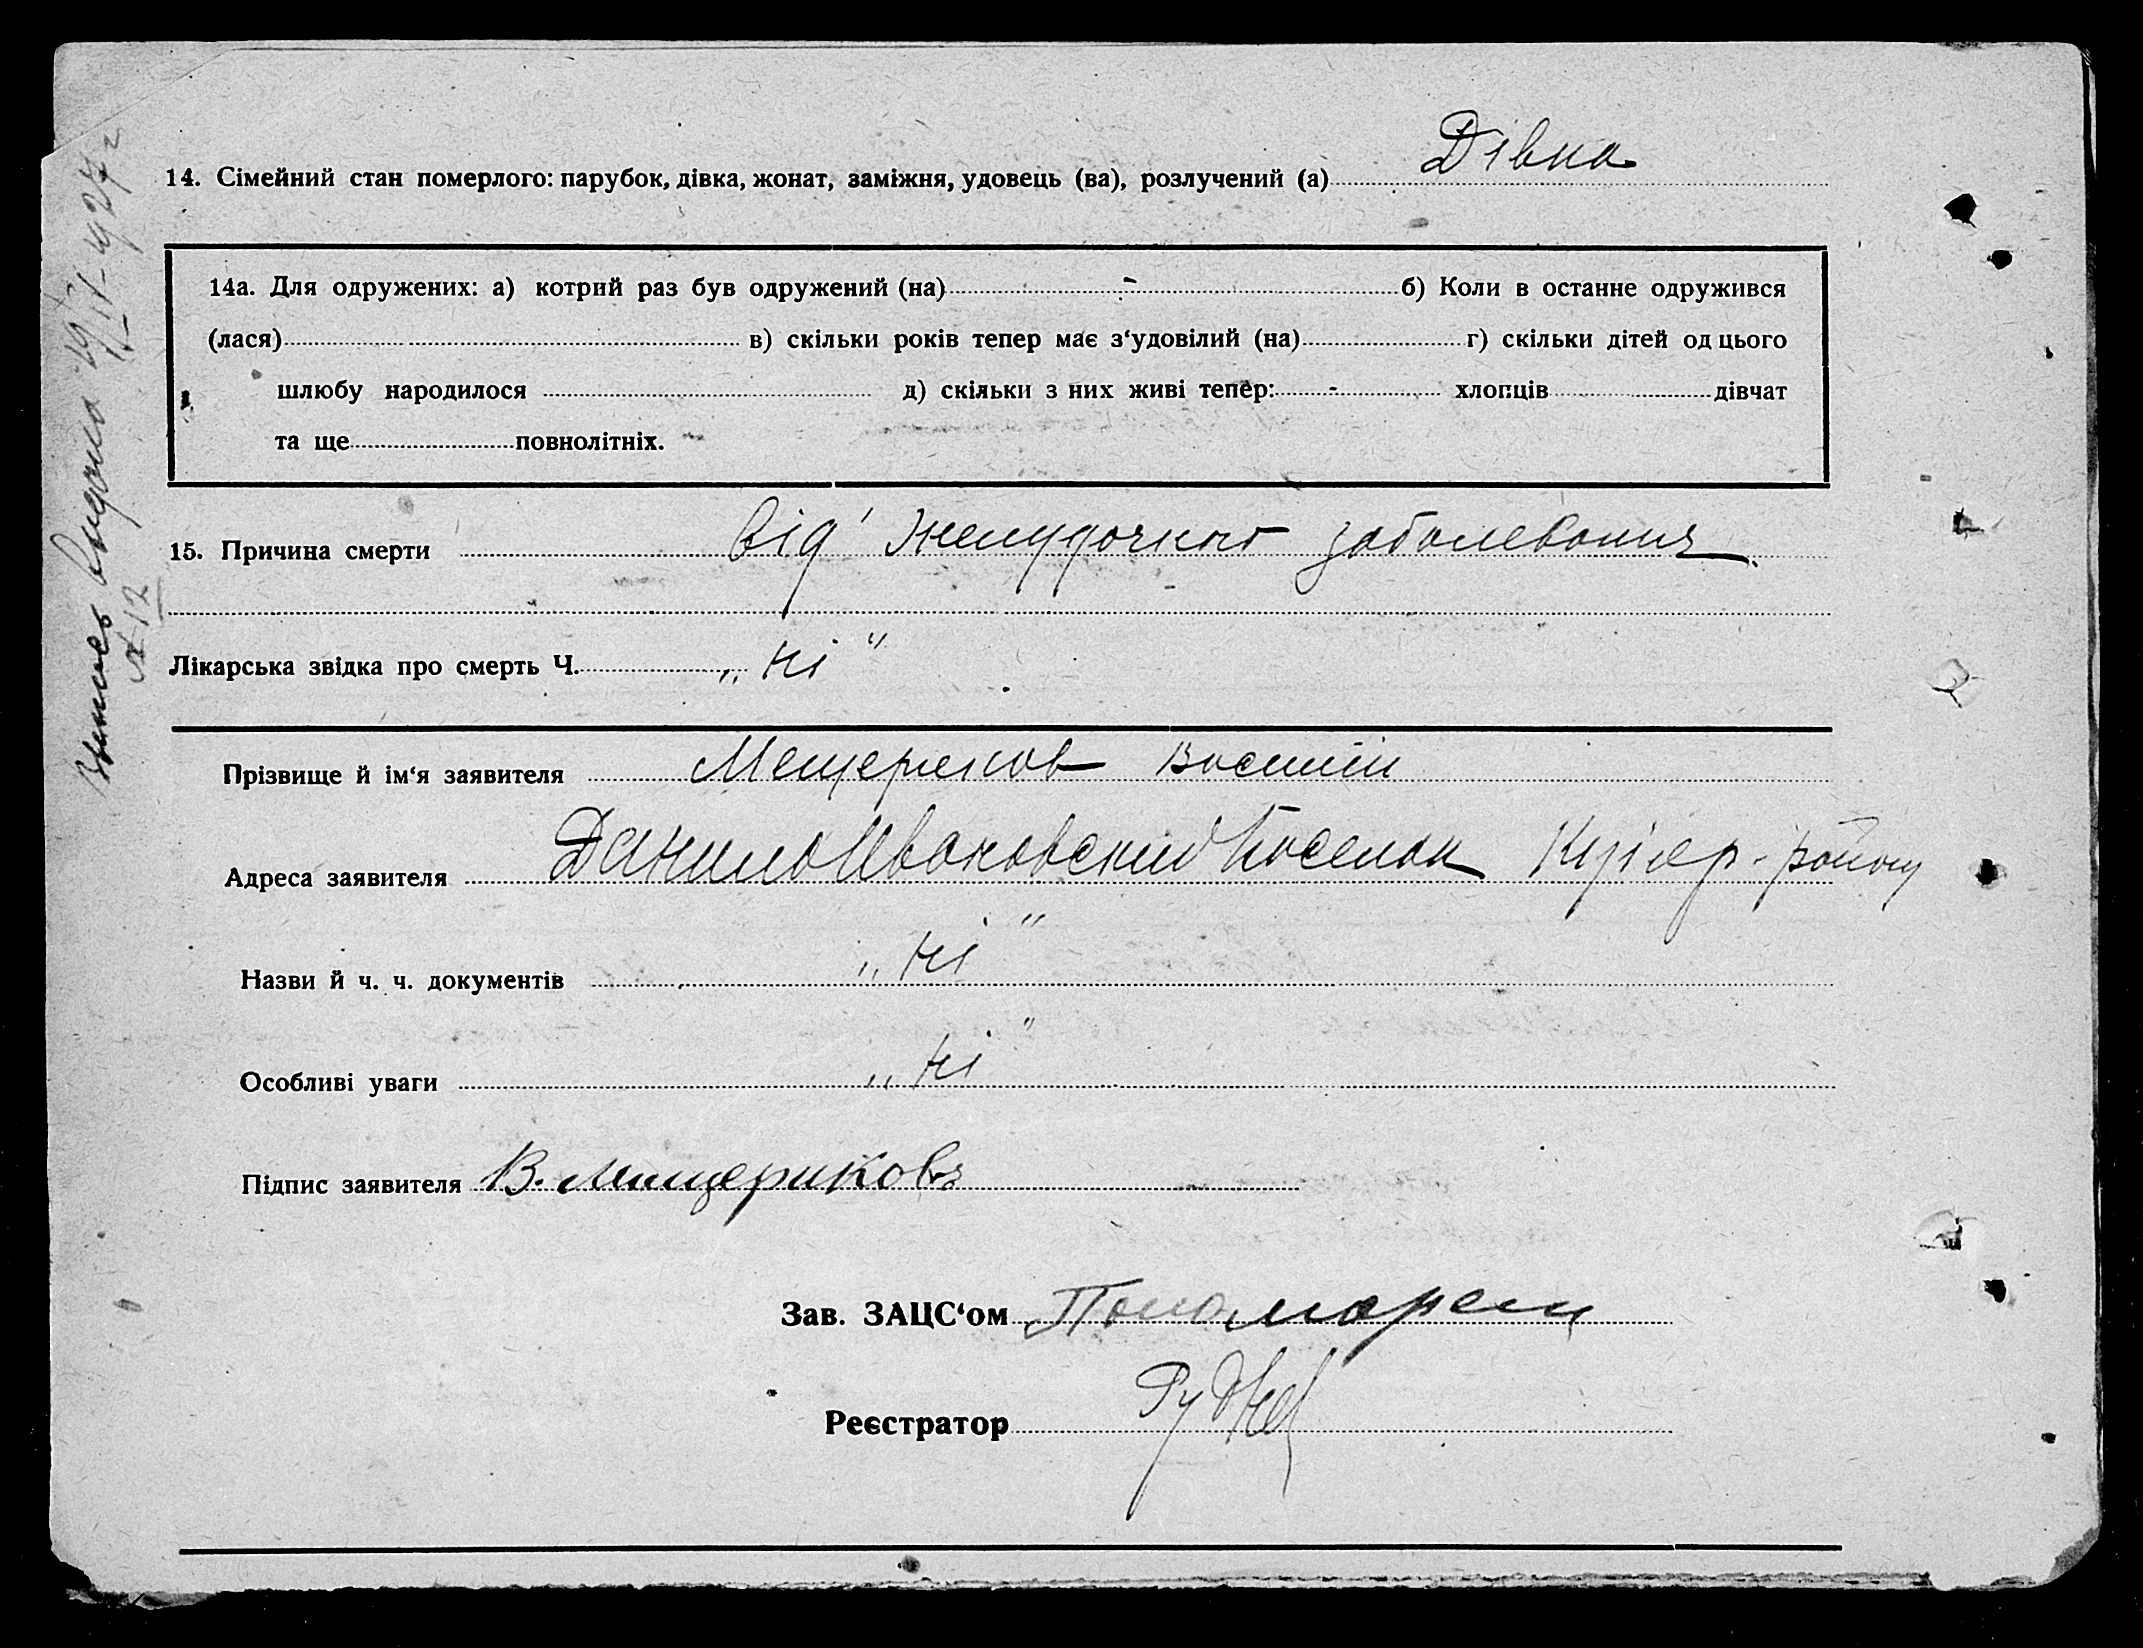 14. Сімейний стан померлого: парубок, дівка, жонат, заміжня, удовець (ва), розлучений (а) Дівка
14а. Для одружених: а) котрий раз був одружений (на) - б) Коли в останне одружився
(лася) в) скільки років тепер має з‘удовілий (на) г) скільки дітей од цього
шлюбу народилося д) скільки з них живі тепер: - хлопців дівчат
та ще повнолітніх.
15. Причина смерти від желудочного заболевания
Лікарська звідка про смерть Ч. „Ні“
Прізвище й ім‘я заявителя Мещеряков Василій
Адреса заявителя Данило Ивановский Поселок район
Назви й ч. ч. документів „Ні“
Особливі уваги „Ні“
Підпис заявителя В. Мищериковъ
Зав. ЗАЦС‘ом
Реєстратор
Выпись выдана 19/IV-1927 г
№ 12